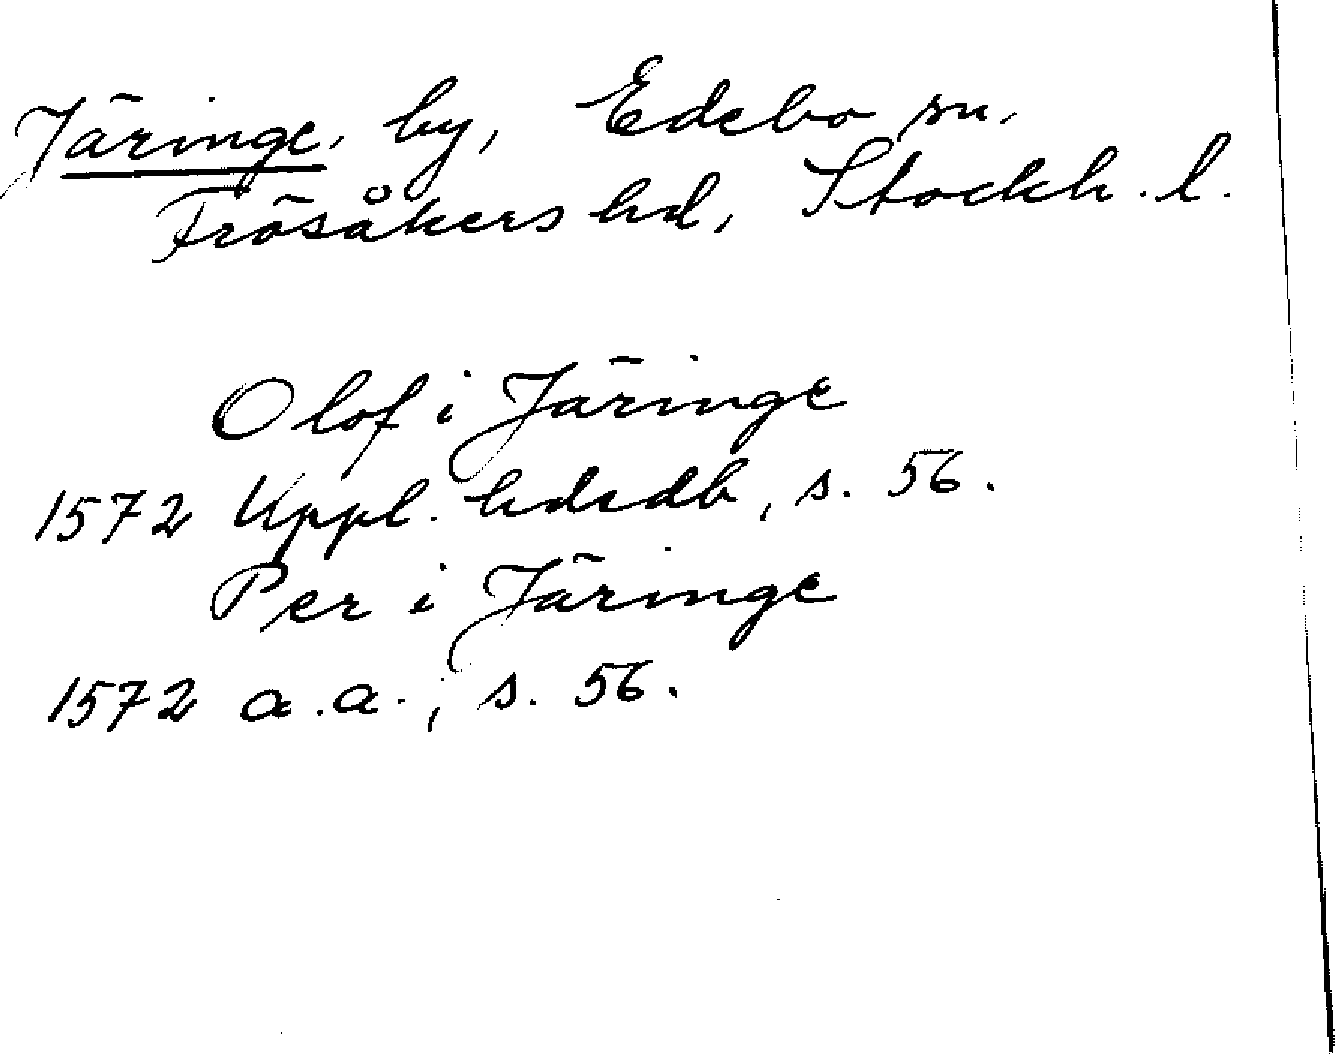 Järinge, by, Edebo sn.
Frösåkers hd, Stockh. l.
Olof i Järinge
1572 Uppl. hdsdb, s. 56.
Per i Järinge
1572 a.a., s. 56.